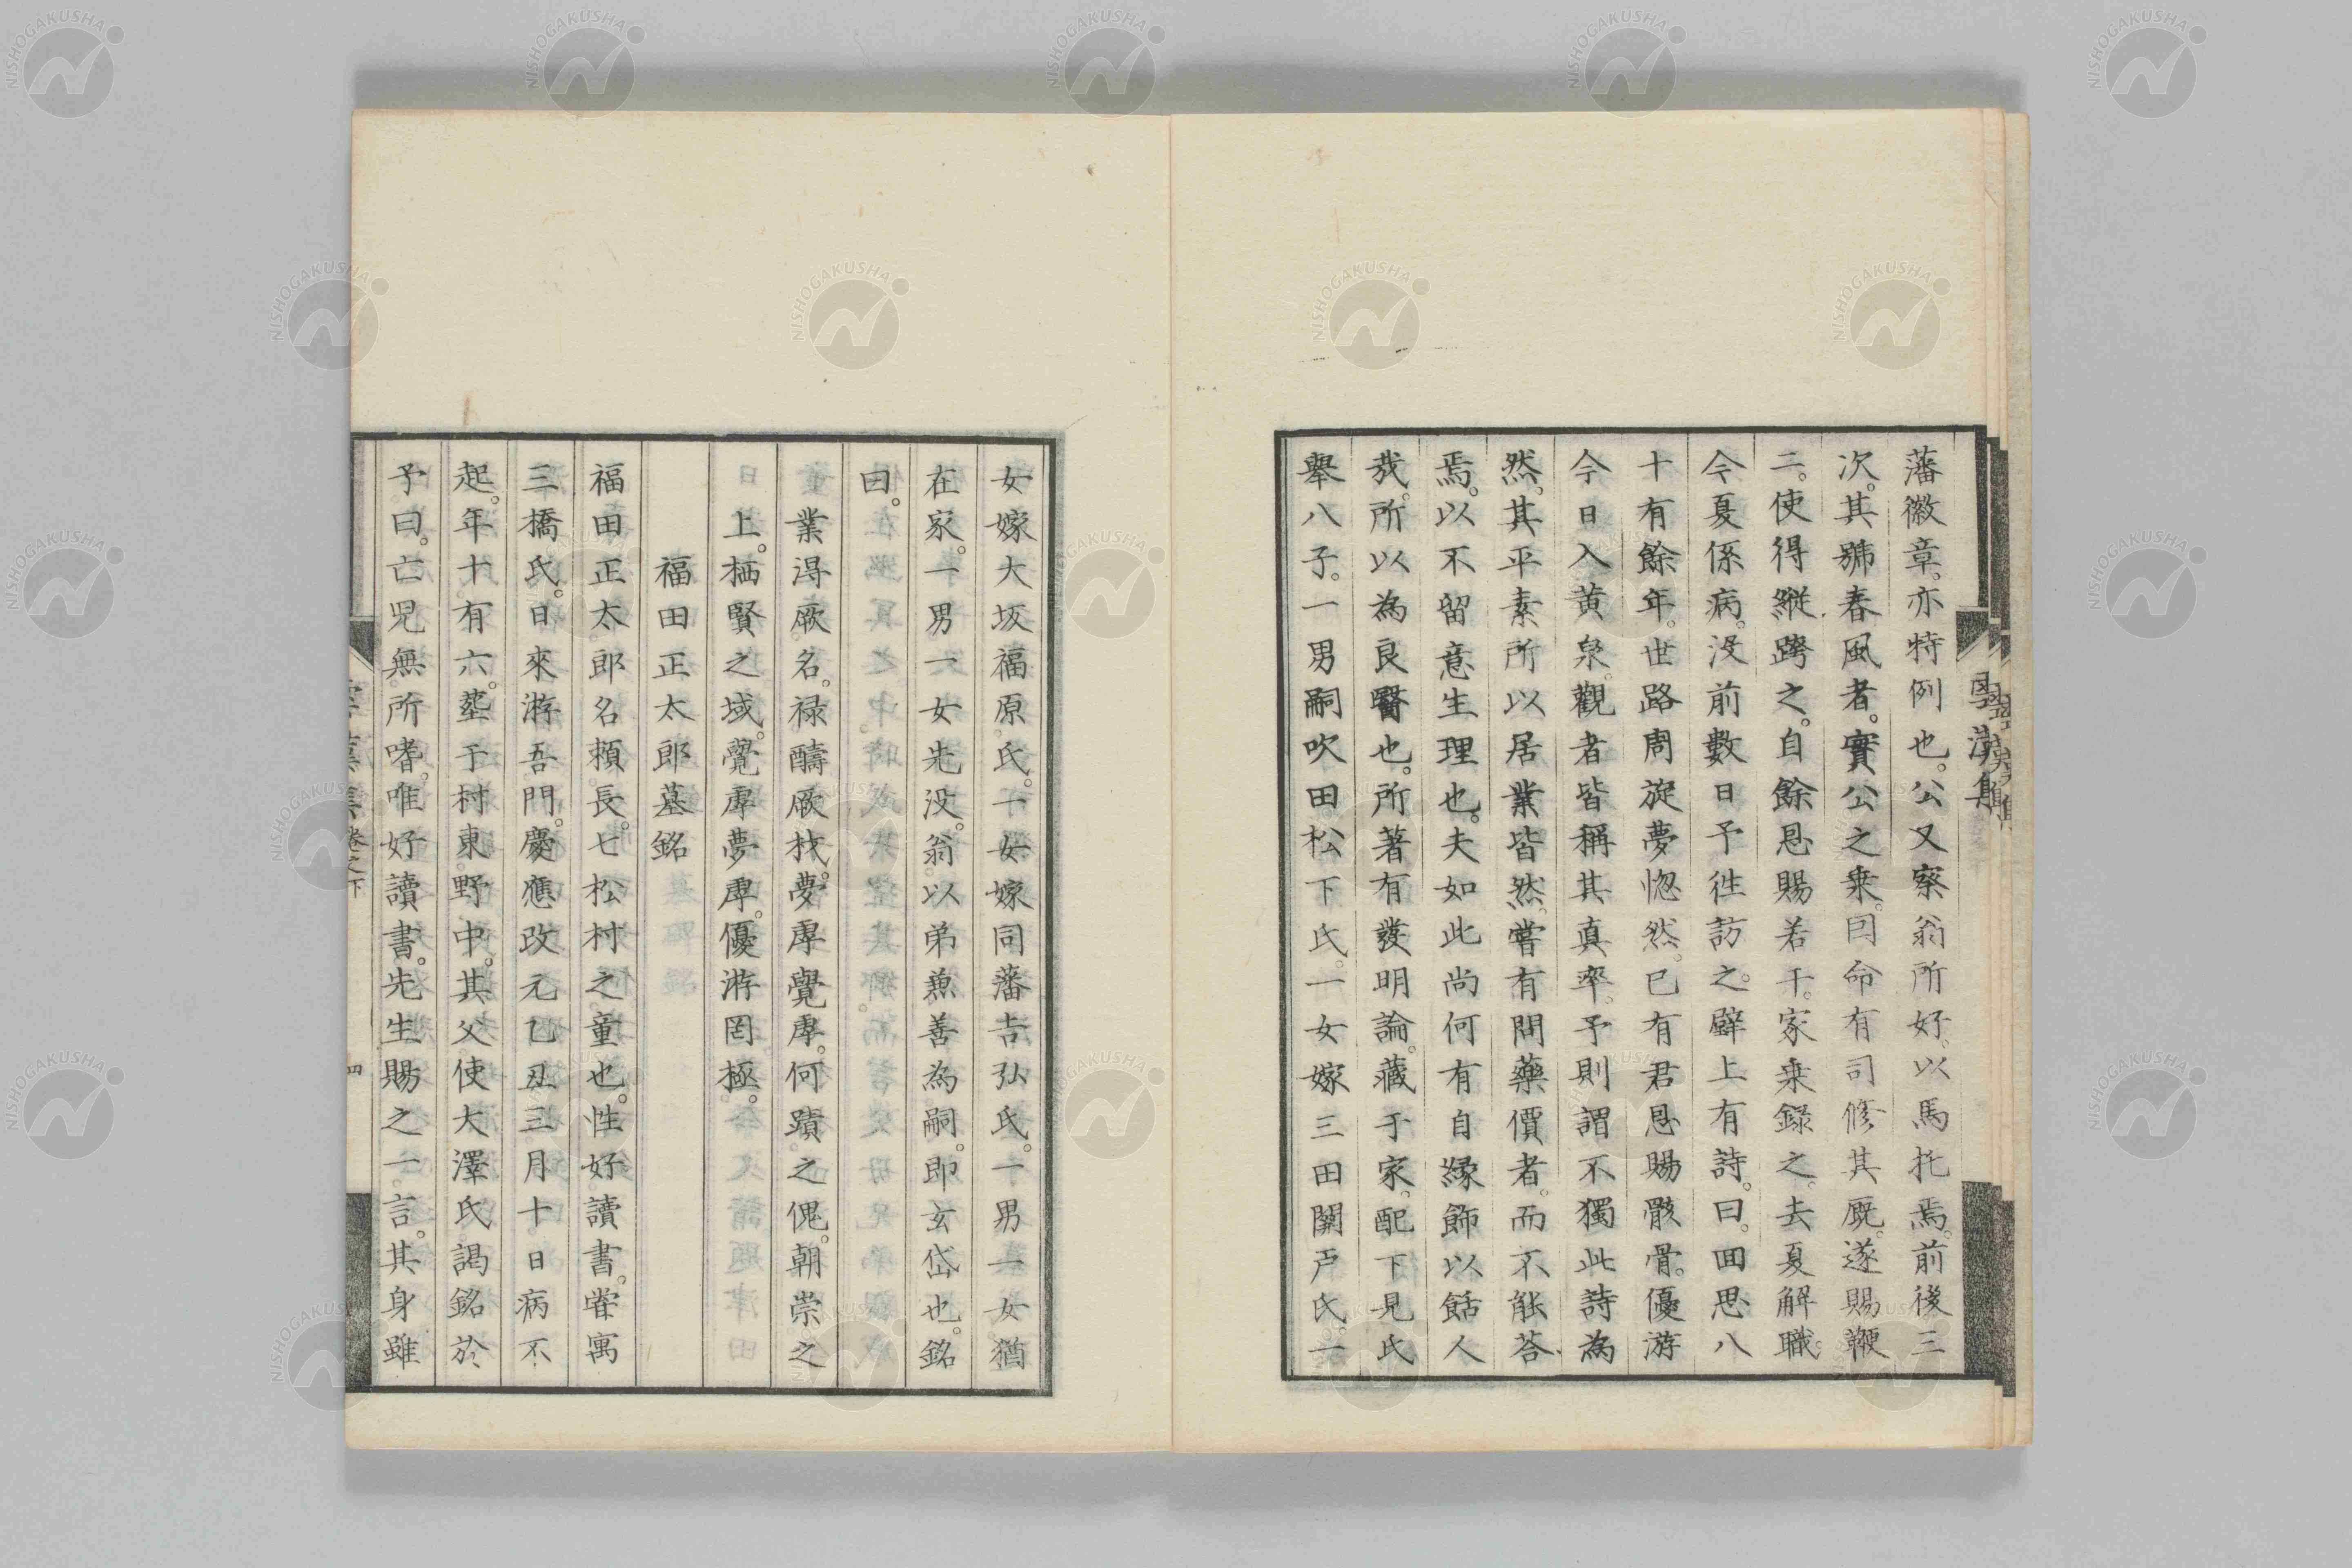 藩徽章。亦特例也。公又察翁所好。以馬托焉。前後三
次。其號春風者。實公之乗。因命有司修其厩。遂賜鞭
二。使得縱跨之。自餘恩賜若干。家乗錄之。去夏解職。
今夏係病。没前數日予徃訪之。壁上有詩。曰。回思八
十有餘年。世路周旋夢惚然。已有君恩賜骸骨。優游
今日入黄泉。觀者皆稱其真率。予則謂不獨此詩為
然。其平素所以居業皆然。嘗有問藥價者。而不能荅
焉。以不留意生理也。夫如此尚何有自縁飾以餂人
哉。所以為良醫也。所著有發明論。藏于家。配下見氏
舉八子。一男嗣吹田松下氏。一女嫁三田關戸氏。一
女嫁大坂福原氏。一女嫁同藩吉弘氏。一男一女猶
在家。一男一女先没。翁以弟兼善為嗣。即玄岱也。銘
曰。
業淂厥名。禄疇厥材。夢虖覺虖。何蹟之傀。朝崇之
日上。栖賢之域。覺虖夢虖。優游罔極。
福田正太郎墓銘
福田正太郎名頼長。七松村之童也。性好讀書。甞寓
三橋氏。日來游吾門。慶應改元乙丑三月十日病不
起。年十有六。塟于村東野中。其父使大澤氏謁銘於
予曰。亡児無所嗜。唯好讀書。先生賜之一言。其身雖
卷之下
四
NISHOGAKUSHA